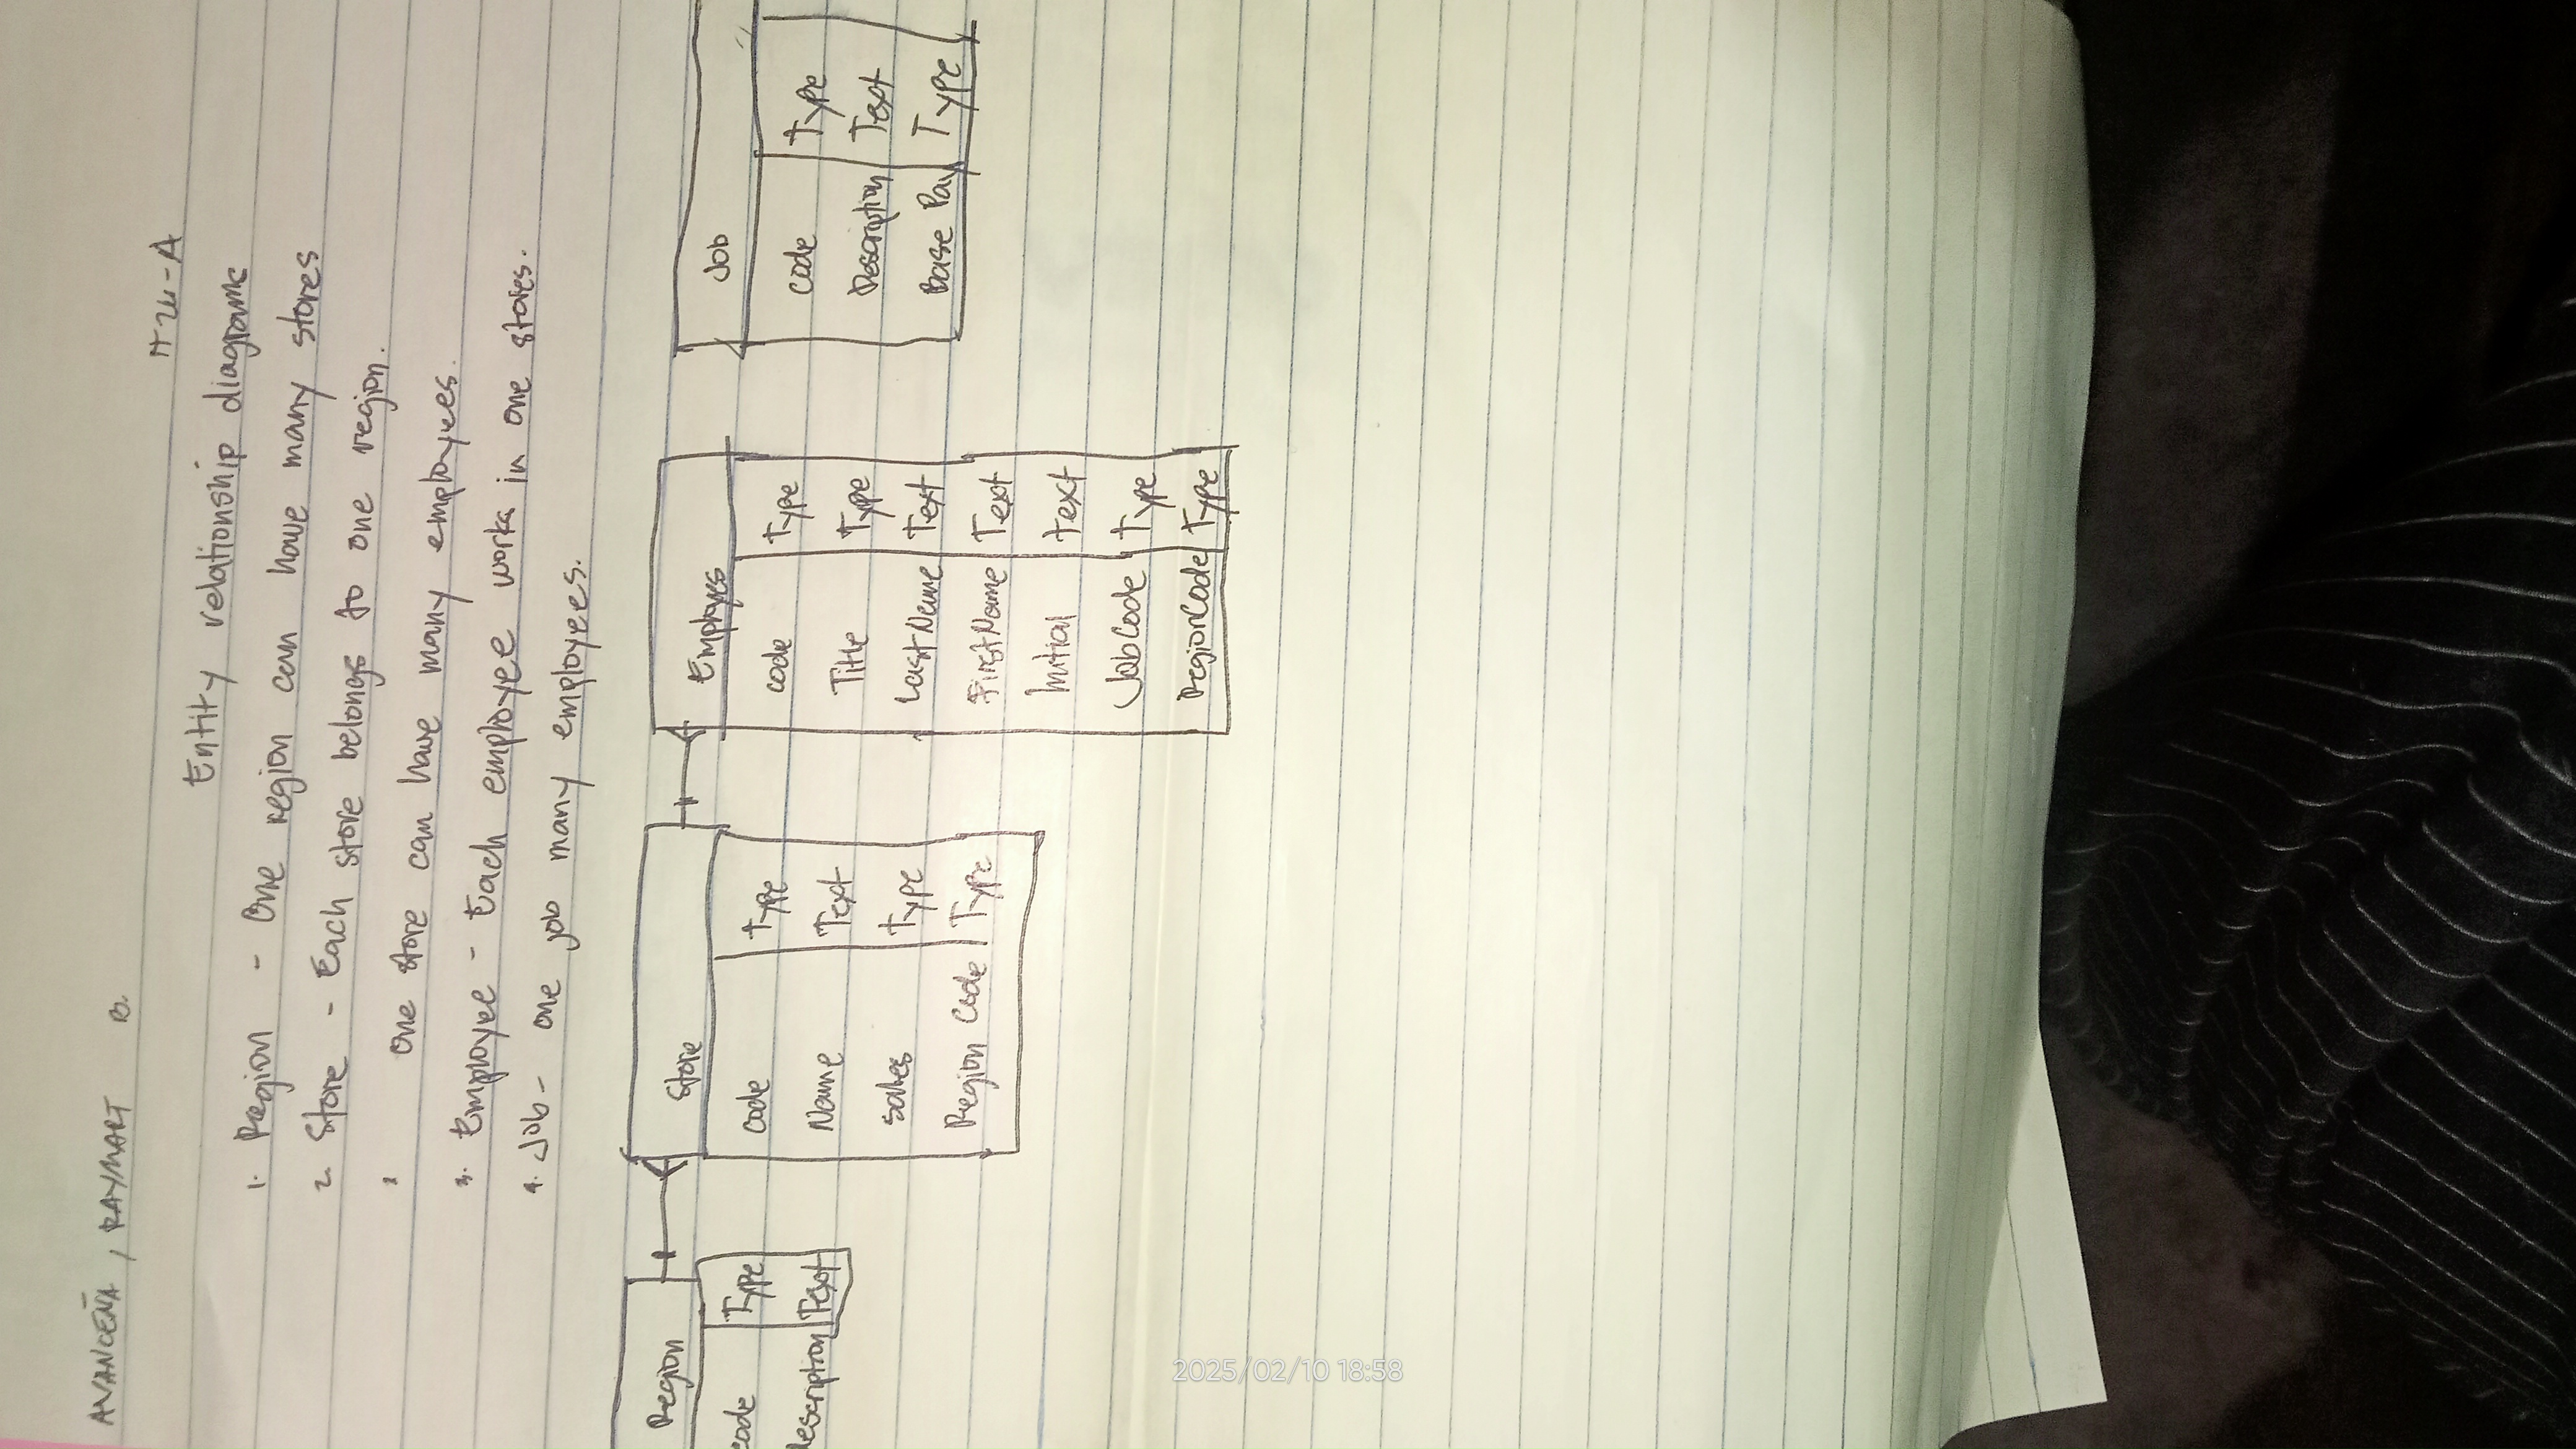 AVANCEÑA, RAYMART B.
IT 2U-A
Entity relationship diagrams
1. Region - One region can have many stores
2. Store - Each store belongs to one region.
one store can have many employees.
3. Employee - Each employee works in one stores.
4. Job - one job many employees.
Region
code Type
description Text
Store
code Type
Name Text
sales Type
Region Code Type
Employes
code Type
Title Type
LastName Text
FirstName Text
Initial text
JobCode Type
RegionCode Type
Job
code Type
Description Text
Base Pay Type
2025/02/10 18:58